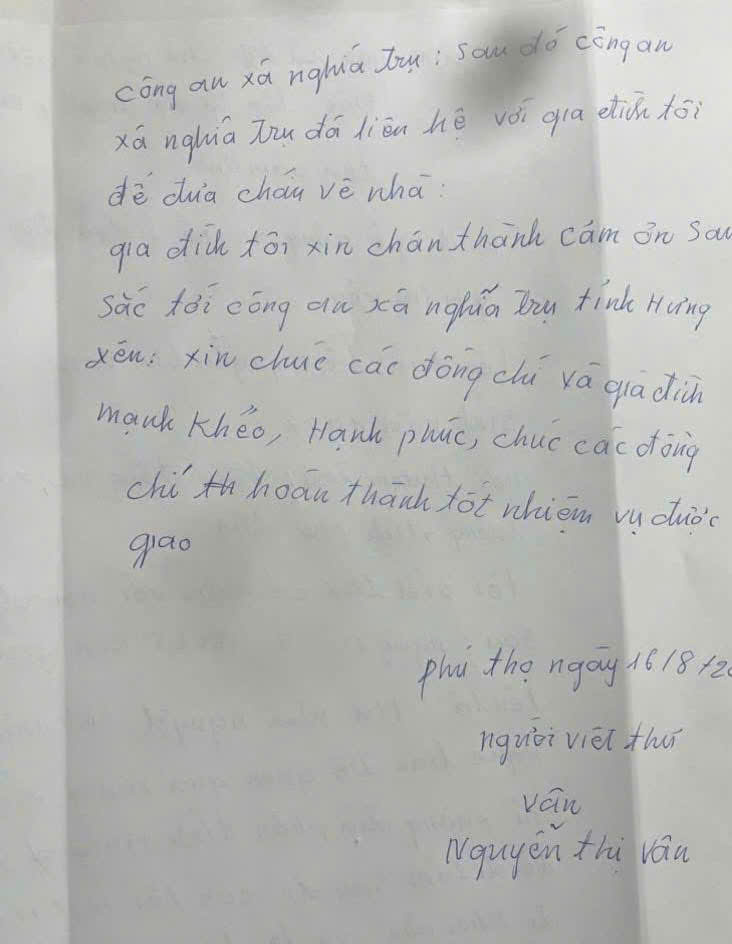 công an xã nghĩa Trụ; sau đó công an
xã nghĩa Trụ đã liên hệ với gia đình tôi
để đưa cháu về nhà:
gia đình tôi xin chân thành cám ơn sau
sắc tới công an xã nghĩa Trụ tỉnh Hưng
yên: xin chúc các đồng chí và gia đình
mạnh khỏe, Hạnh phúc, chúc các đồng
chí th hoàn thành tốt nhiệm vụ được
giao
phú thọ ngày 16/8/2
người viết thư
Vân
Nguyễn thị Vân